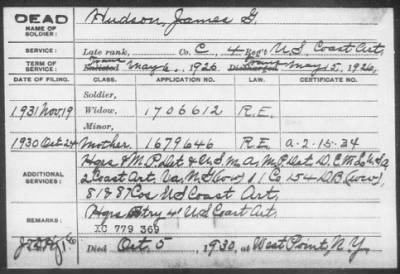 DEAD
NAME OF SOLDIER: Hudson, James G.
SERVICE: Late rank, Co. C, 4 Reg't U.S. Coast Art.
TERM OF SERVICE: Enlisted May 6, 1926 Discharged May 5, 1926
DATE OF FILING. CLASS. APPLICATION NO. LAW. CERTIFICATE NO.
Soldier,
1931 Nov 19 Widow, 1706612 R.E.
Minor,
1930 Oct 24 Mother. 1679646 R.E. a-2-15-34
ADDITIONAL SERVICES: Hqrs & M.P. Det & U.S.M.A. M.P. Det. D.E.M.L.
2 Coast Art, Va. N.G. 11 Co. 154 D.B. (WW),
51 & 87 Cos US Coast Art,
REMARKS: Hqrs Btry 41 US Coast Art.
XC 779 369
Died Oct. 5, 1930, at West Point, N.Y.